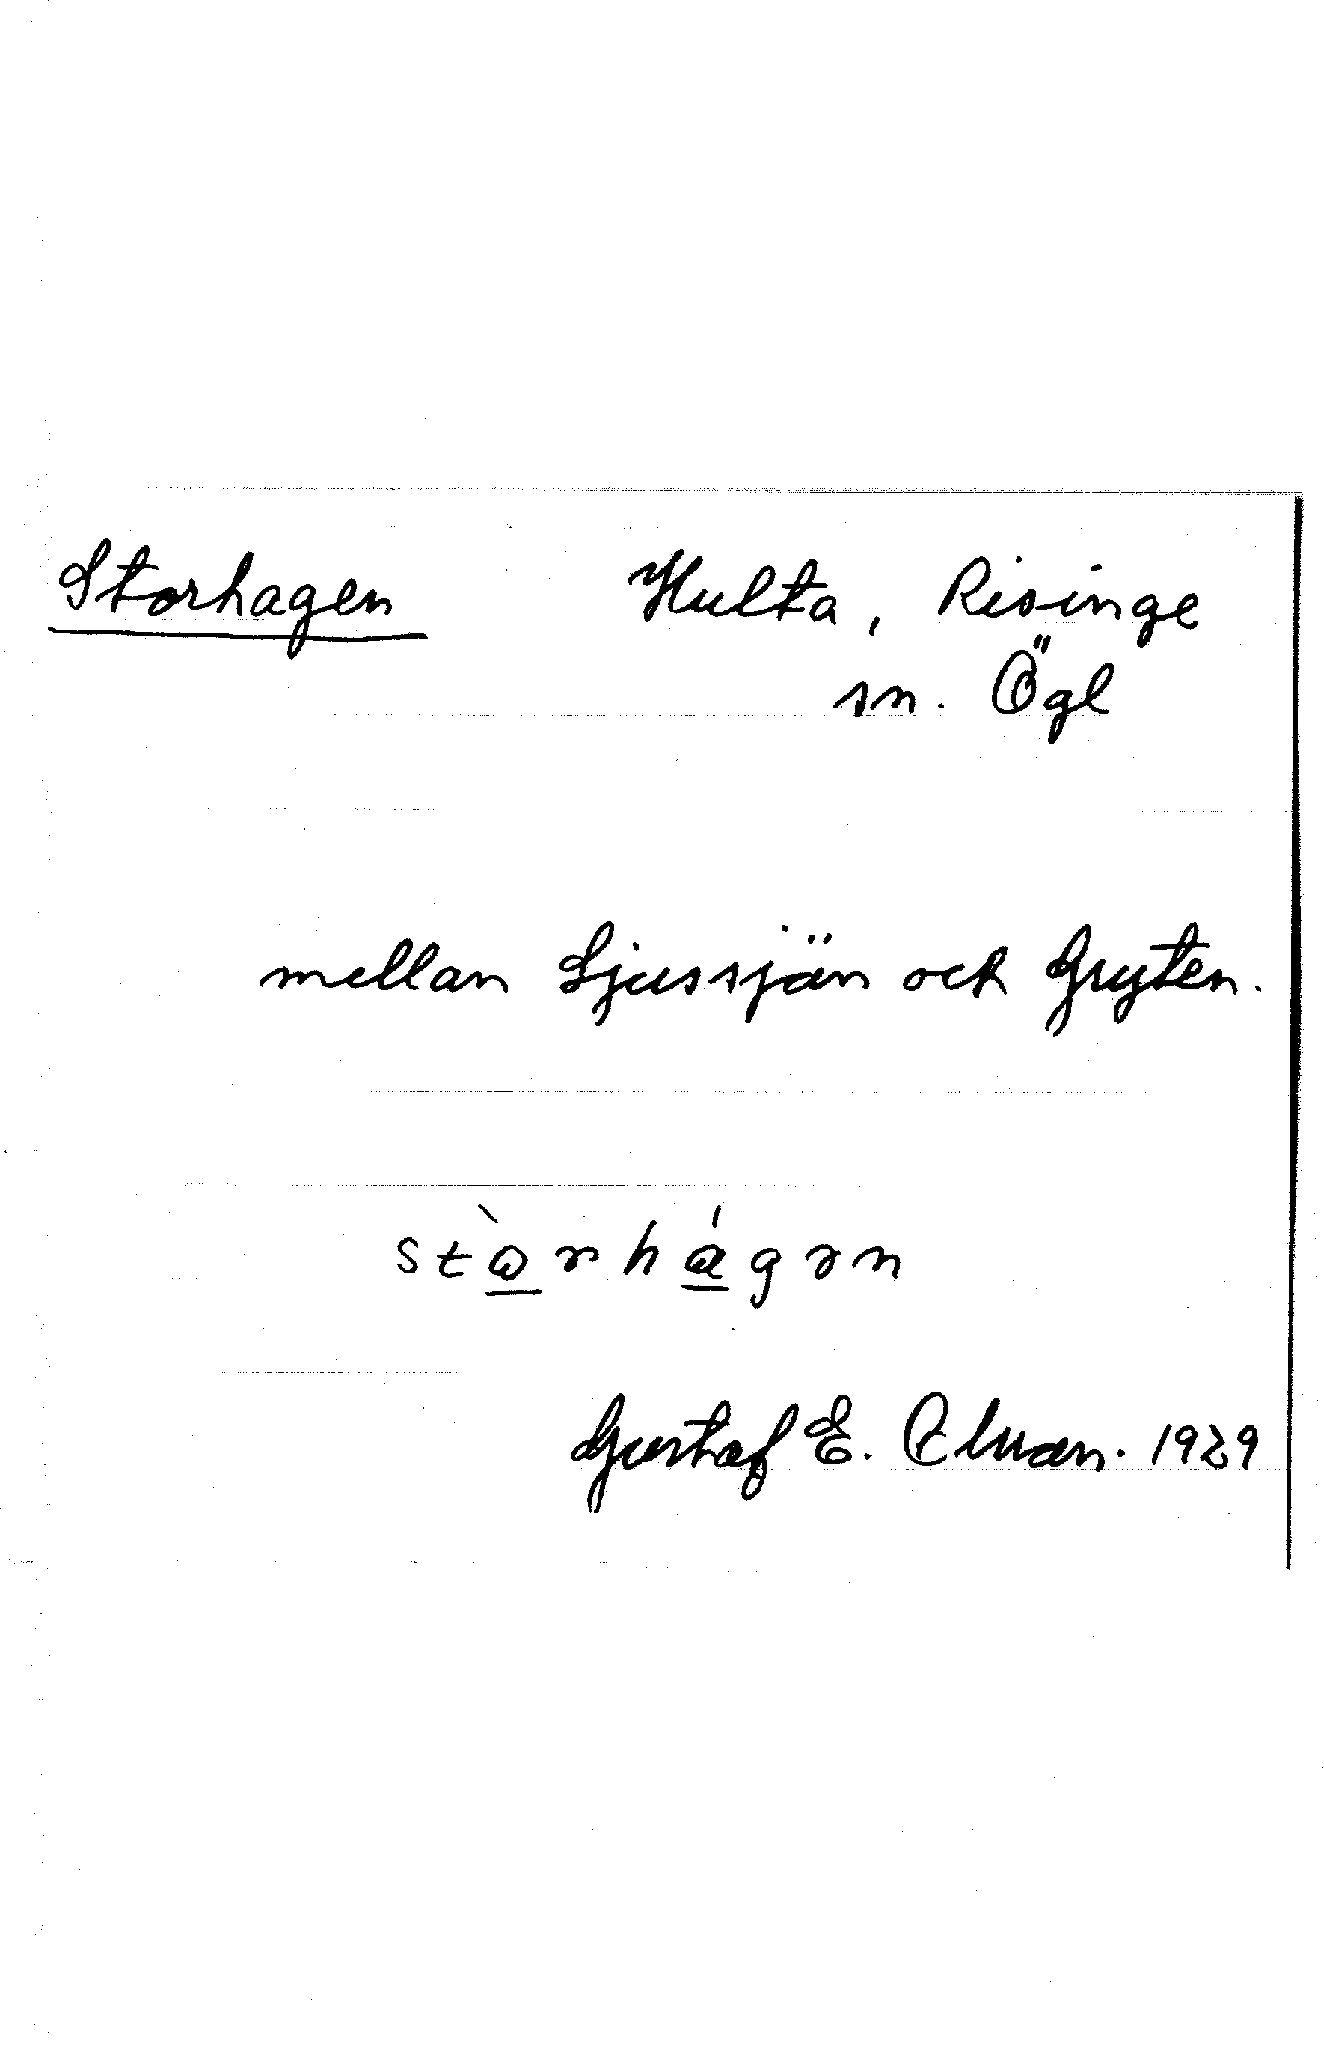 Storhagen Hulta, Risinge
sn. Ögl
mellan Ljussjön och Gryten.
stòrhágən
Gustaf E. 1929